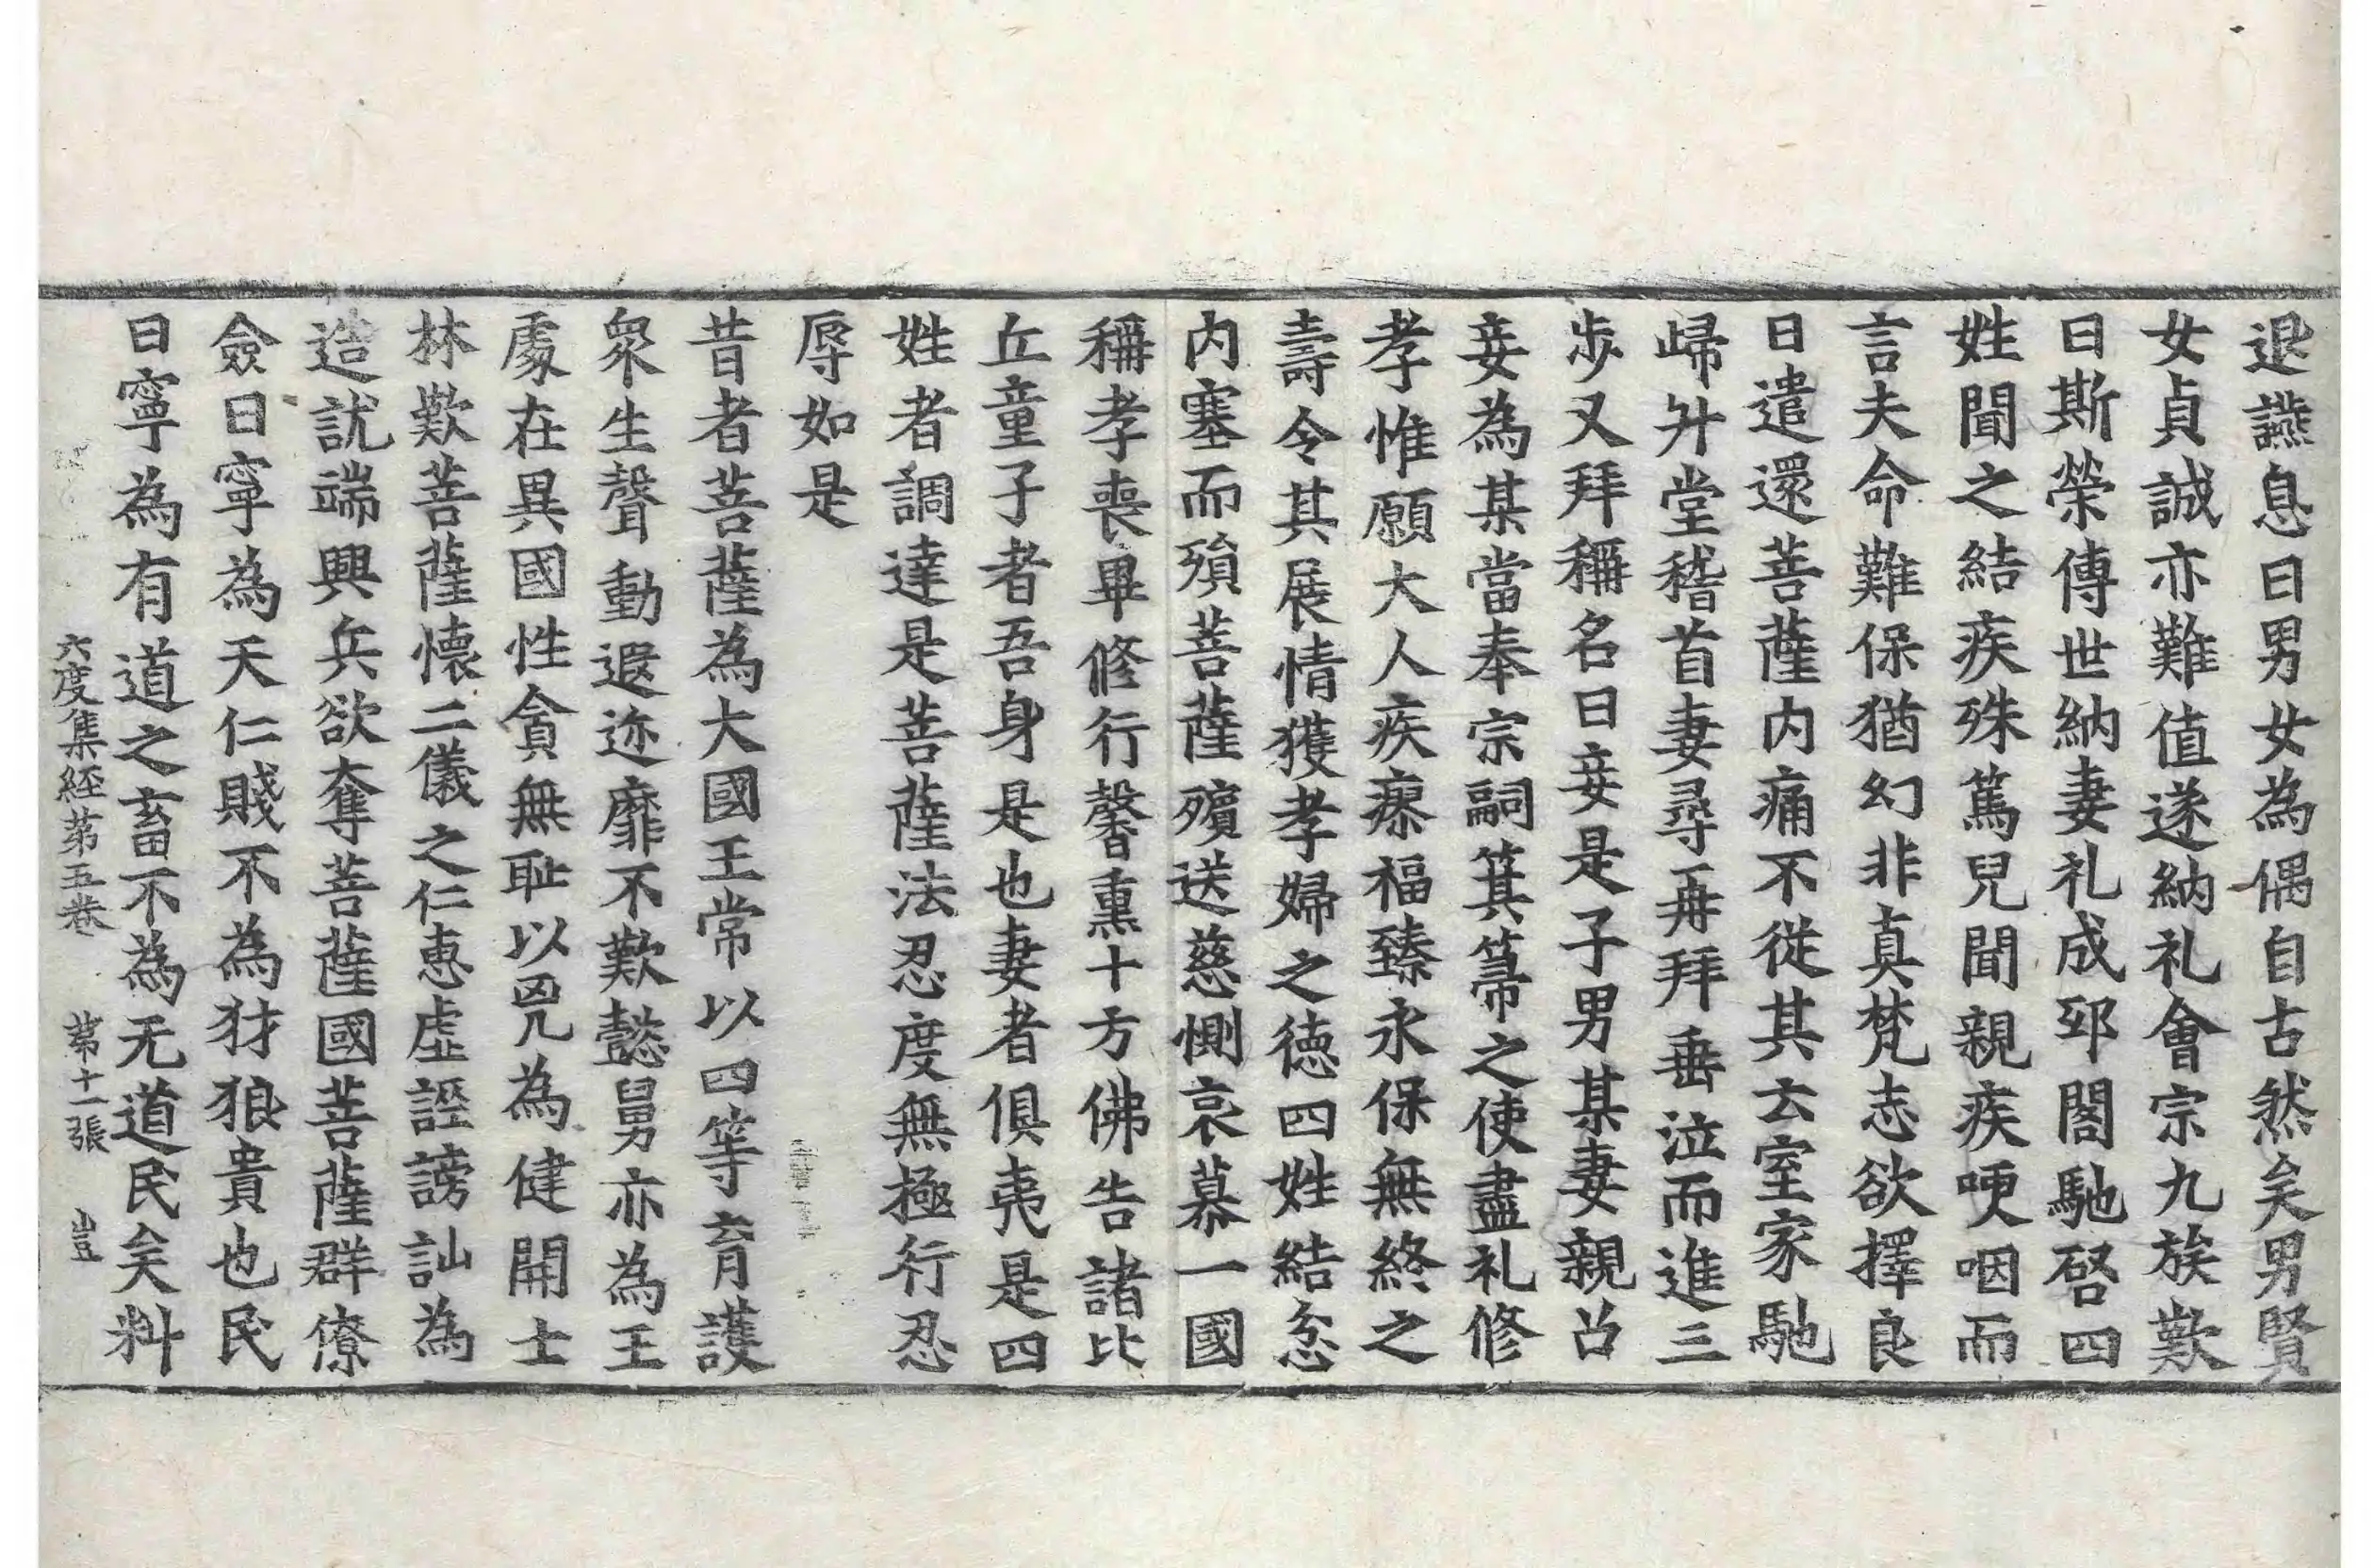 退讌息曰男女為偶自古然矣男賢
女貞誠亦難值遂納礼會宗九族歎
曰斯榮傳世納妻礼成邛閣馳啓四
姓聞之結疾殊篤兒聞親疾哽咽而
言夫命難保猶幻非真梵志欲擇良
日遣還菩薩内痛不從其云室家馳
歸升堂稽首妻尋再拜垂泣而進三
步又拜稱名曰妾是子男某妻親召
妾為某當奉宗嗣箕箒之使盡礼修
孝惟願大人疾瘳福臻永保無終之
壽令其展情獲孝婦之德四姓結忿
内塞而殞菩薩殯送慈惻哀慕一國
稱孝喪畢修行馨熏十方佛告諸比
丘童子者吾身是也妻者俱夷是四
姓者調達是菩薩法忍度無極行忍
辱如是
昔者菩薩為大國王常以四等育護
衆生聲動遐迩靡不歎懿舅亦為王
處在異國性貪無恥以兇為健開士
林歎菩薩懷二儀之仁惠虛誣謗訕為
造訧端興兵欲奪菩薩國菩薩群僚
僉曰寧為天仁賤不為犲狼貴也民
曰寧為有道之畜不為无道民矣料
六度集経第五卷 第十一張 豈